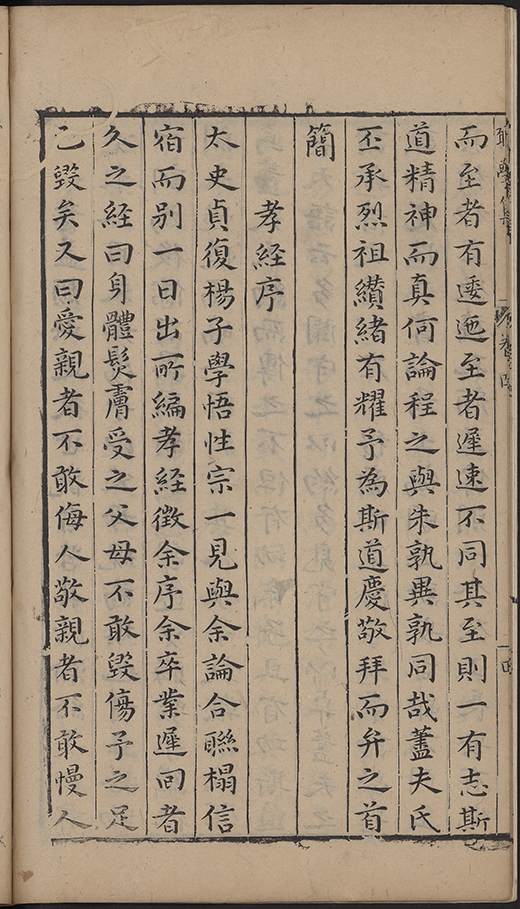 而至者有逶迤至者遲速不同其至則一有志斯
道精神而真何論程之與朱孰異孰同哉蓋夫氏
丕承烈祖纘緒有耀予為斯道慶敬拜而弁之首
簡
孝經序
太史貞復楊子學悟性宗一見與余論合聯榻信
宿而別一日出所編孝經徵余序余卒業遲回者
久之經曰身體髮膚受之父母不敢毀傷予之足
已毀矣又曰愛親者不敢侮人敬親者不敢慢人